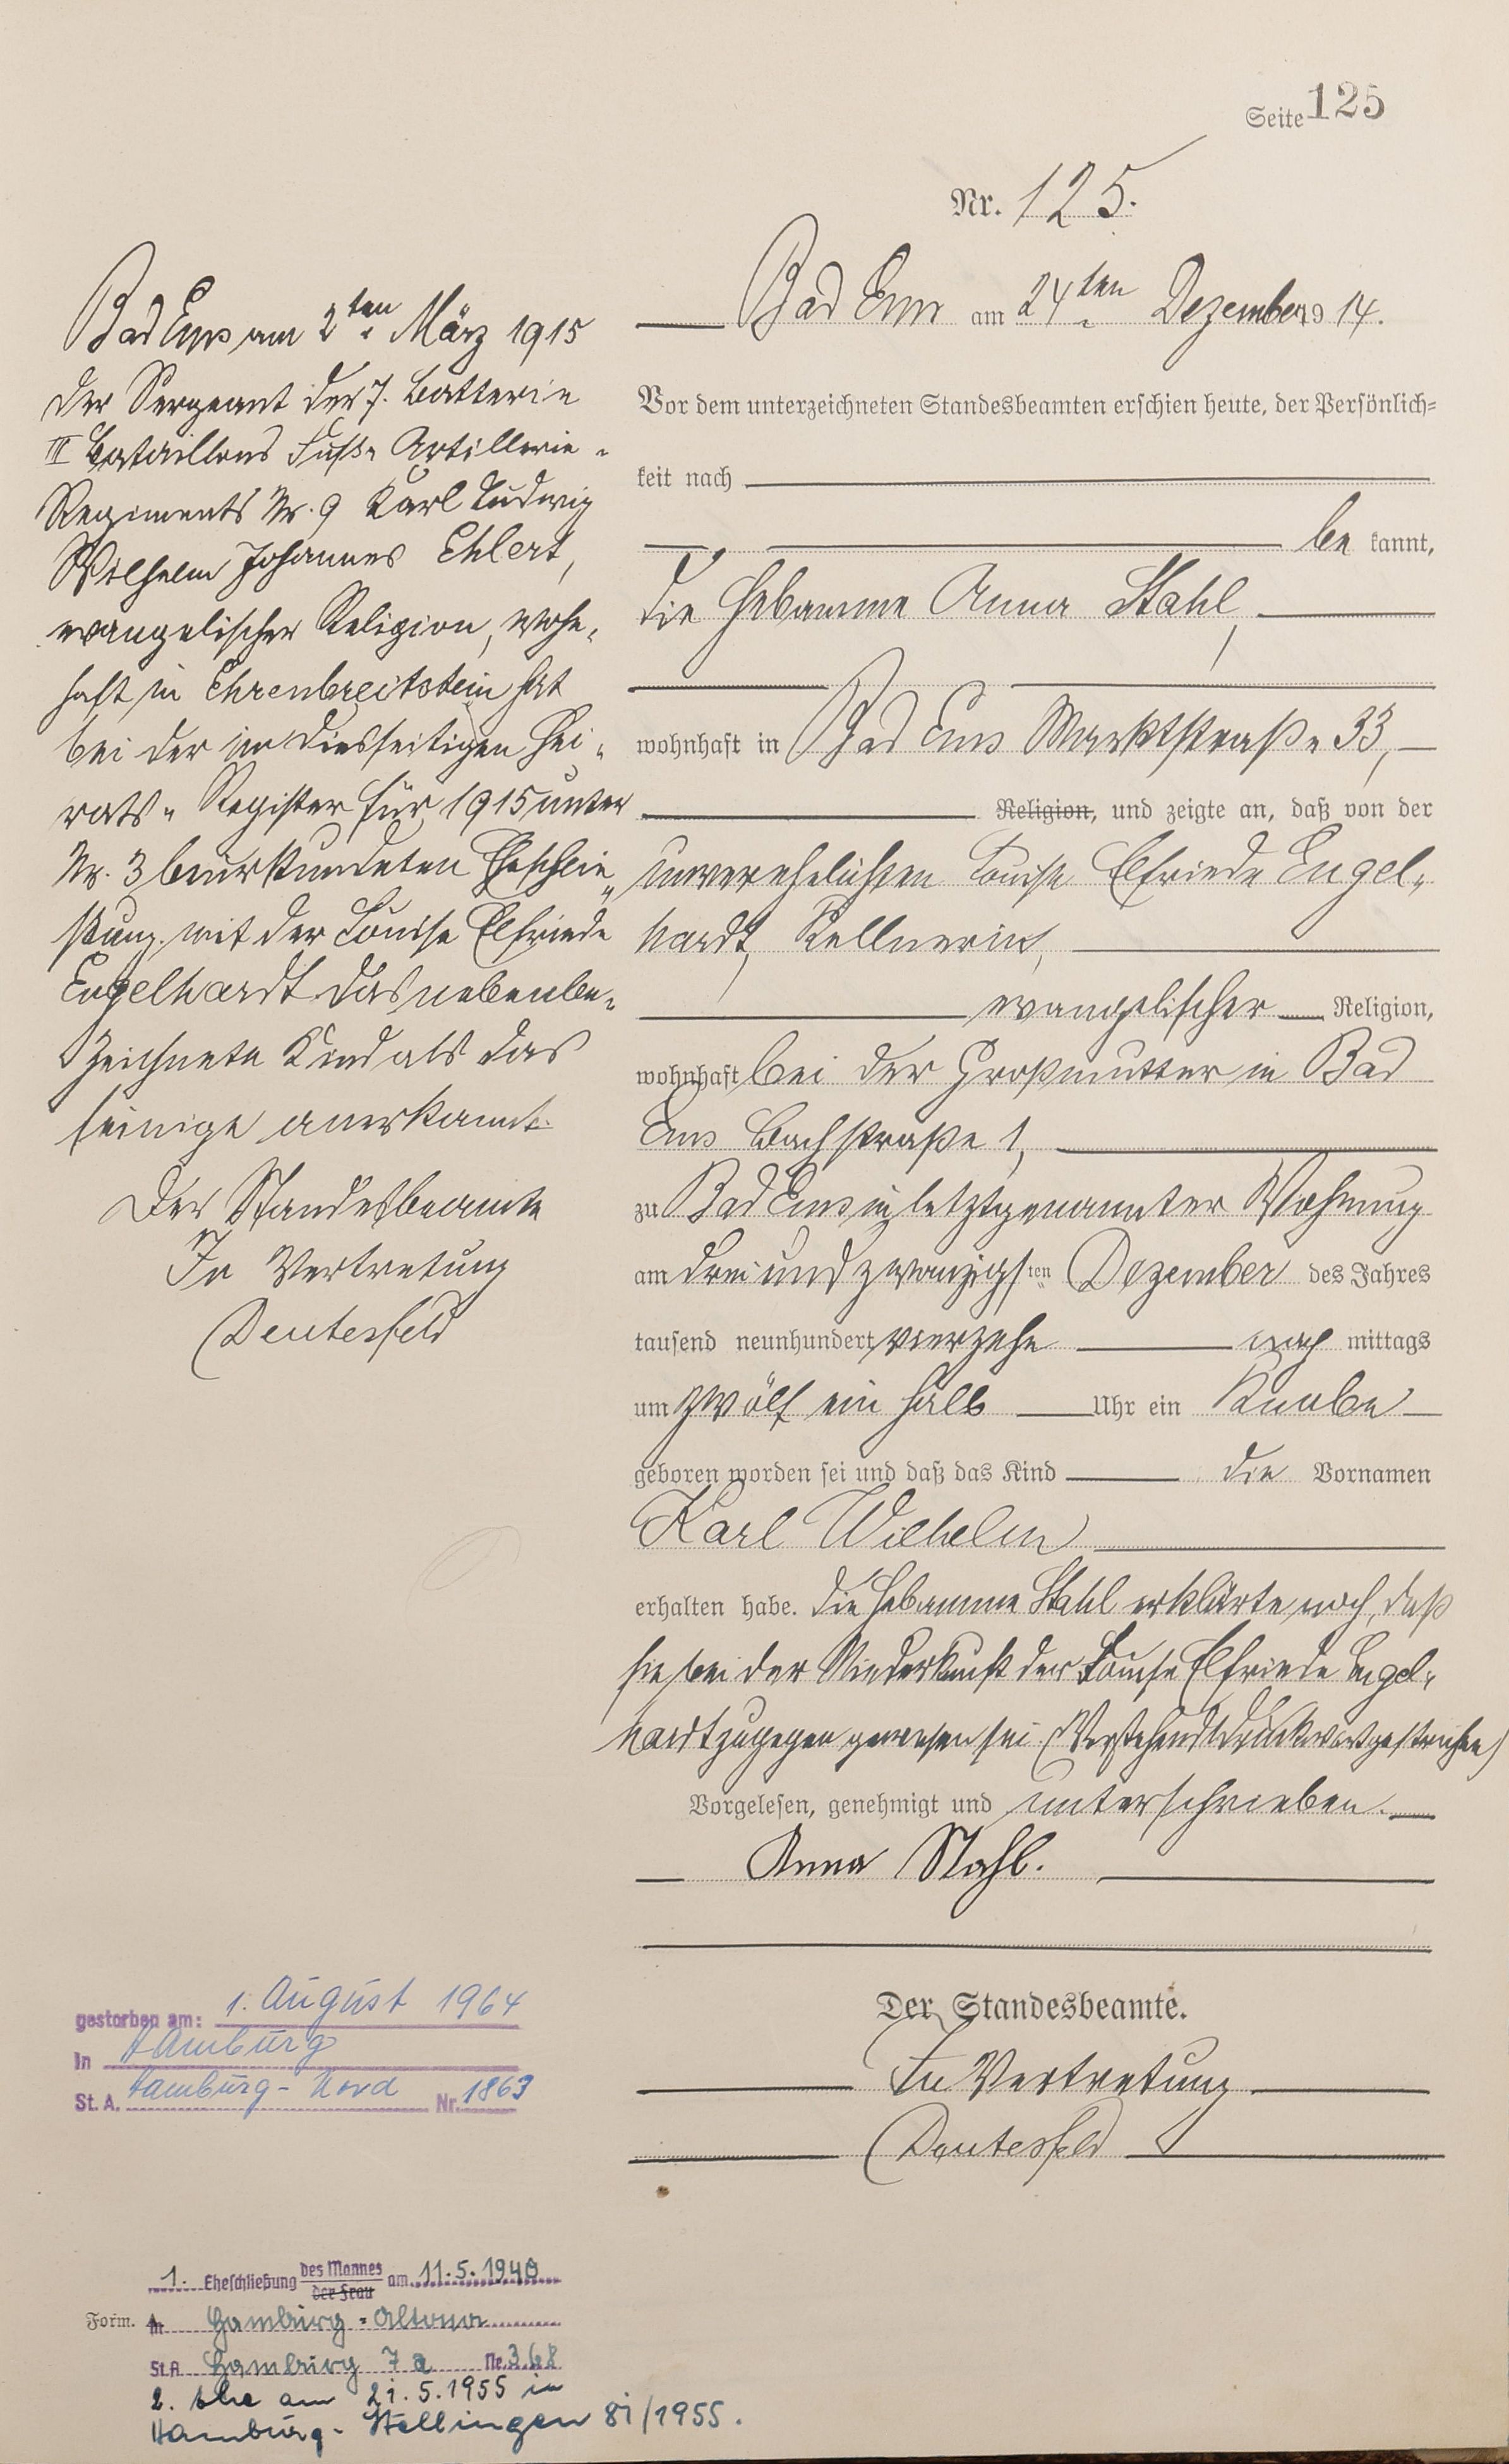 Seite 125
Nr. 125.
Bad Ems am 24ten Dezember 1914.
Vor dem unterzeichneten Standesbeamten erschien heute, der Persönlich=
keit nach
be kannt,
die Hebamme Anna Stahl,
wohnhaft in Bad Ems Marktstraße 33,
Religion, und zeigte an, daß von der
unverehelichten Louise Elfriede Engel-
hardt, Kellnerin,
evangelischer Religion,
wohnhaft bei der Großmutter in Bad
Ems Bachstraße 1,
zu Bad Ems in letztgenannter Wohnung
am dreiundzwanzigsten Dezember des Jahres
tausend neunhundert vierzehn nach mittags
um zwölf ein halb Uhr ein Knabe
geboren worden sei und daß das Kind die Vornamen
Karl Wilhelm
erhalten habe. Die Hebamme Stahl erklärte noch, daß
sie bei der Niederkunft der Louise Elfriede Engel-
hardt zugegen gewesen sei. (Vorstehend 1 Druckwort gestrichen)
Vorgelesen, genehmigt und unterschrieben.
Anna Stahl.
Der Standesbeamte.
In Vertretung
Deutesfeld
Bad Ems am 2ten März 1915
Der Sergeant der 7. Batterie
III Bataillons Fuß-Artillerie-
Regiments Nr. 9 Karl Ludwig
Wilhelm Johannes Ehlert,
evangelischer Religion, wohn-
haft in Ehrenbreitstein hat
bei der im diesseitigen Hei-
rats-Register für 1915 unter
Nr. 3 beurkundeten Eheschlie-
ßung mit der Louise Elfriede
Engelhardt das nebenbe-
zeichnete Kind als das
seinige anerkannt.
Der Standesbeamte
In Vertretung
Deutesfeld
gestorben am: 1. August 1964
in Hamburg
St. A. Hamburg-Nord Nr. 1863
1. Eheschließung des Mannes der Frau am 11.5.1940
Form. A in Hamburg-Altona
St.A. Hamburg 7a Nr. 368
2. Ehe am 21.5.1955 in
Hamburg-Stellingen 81/1955.